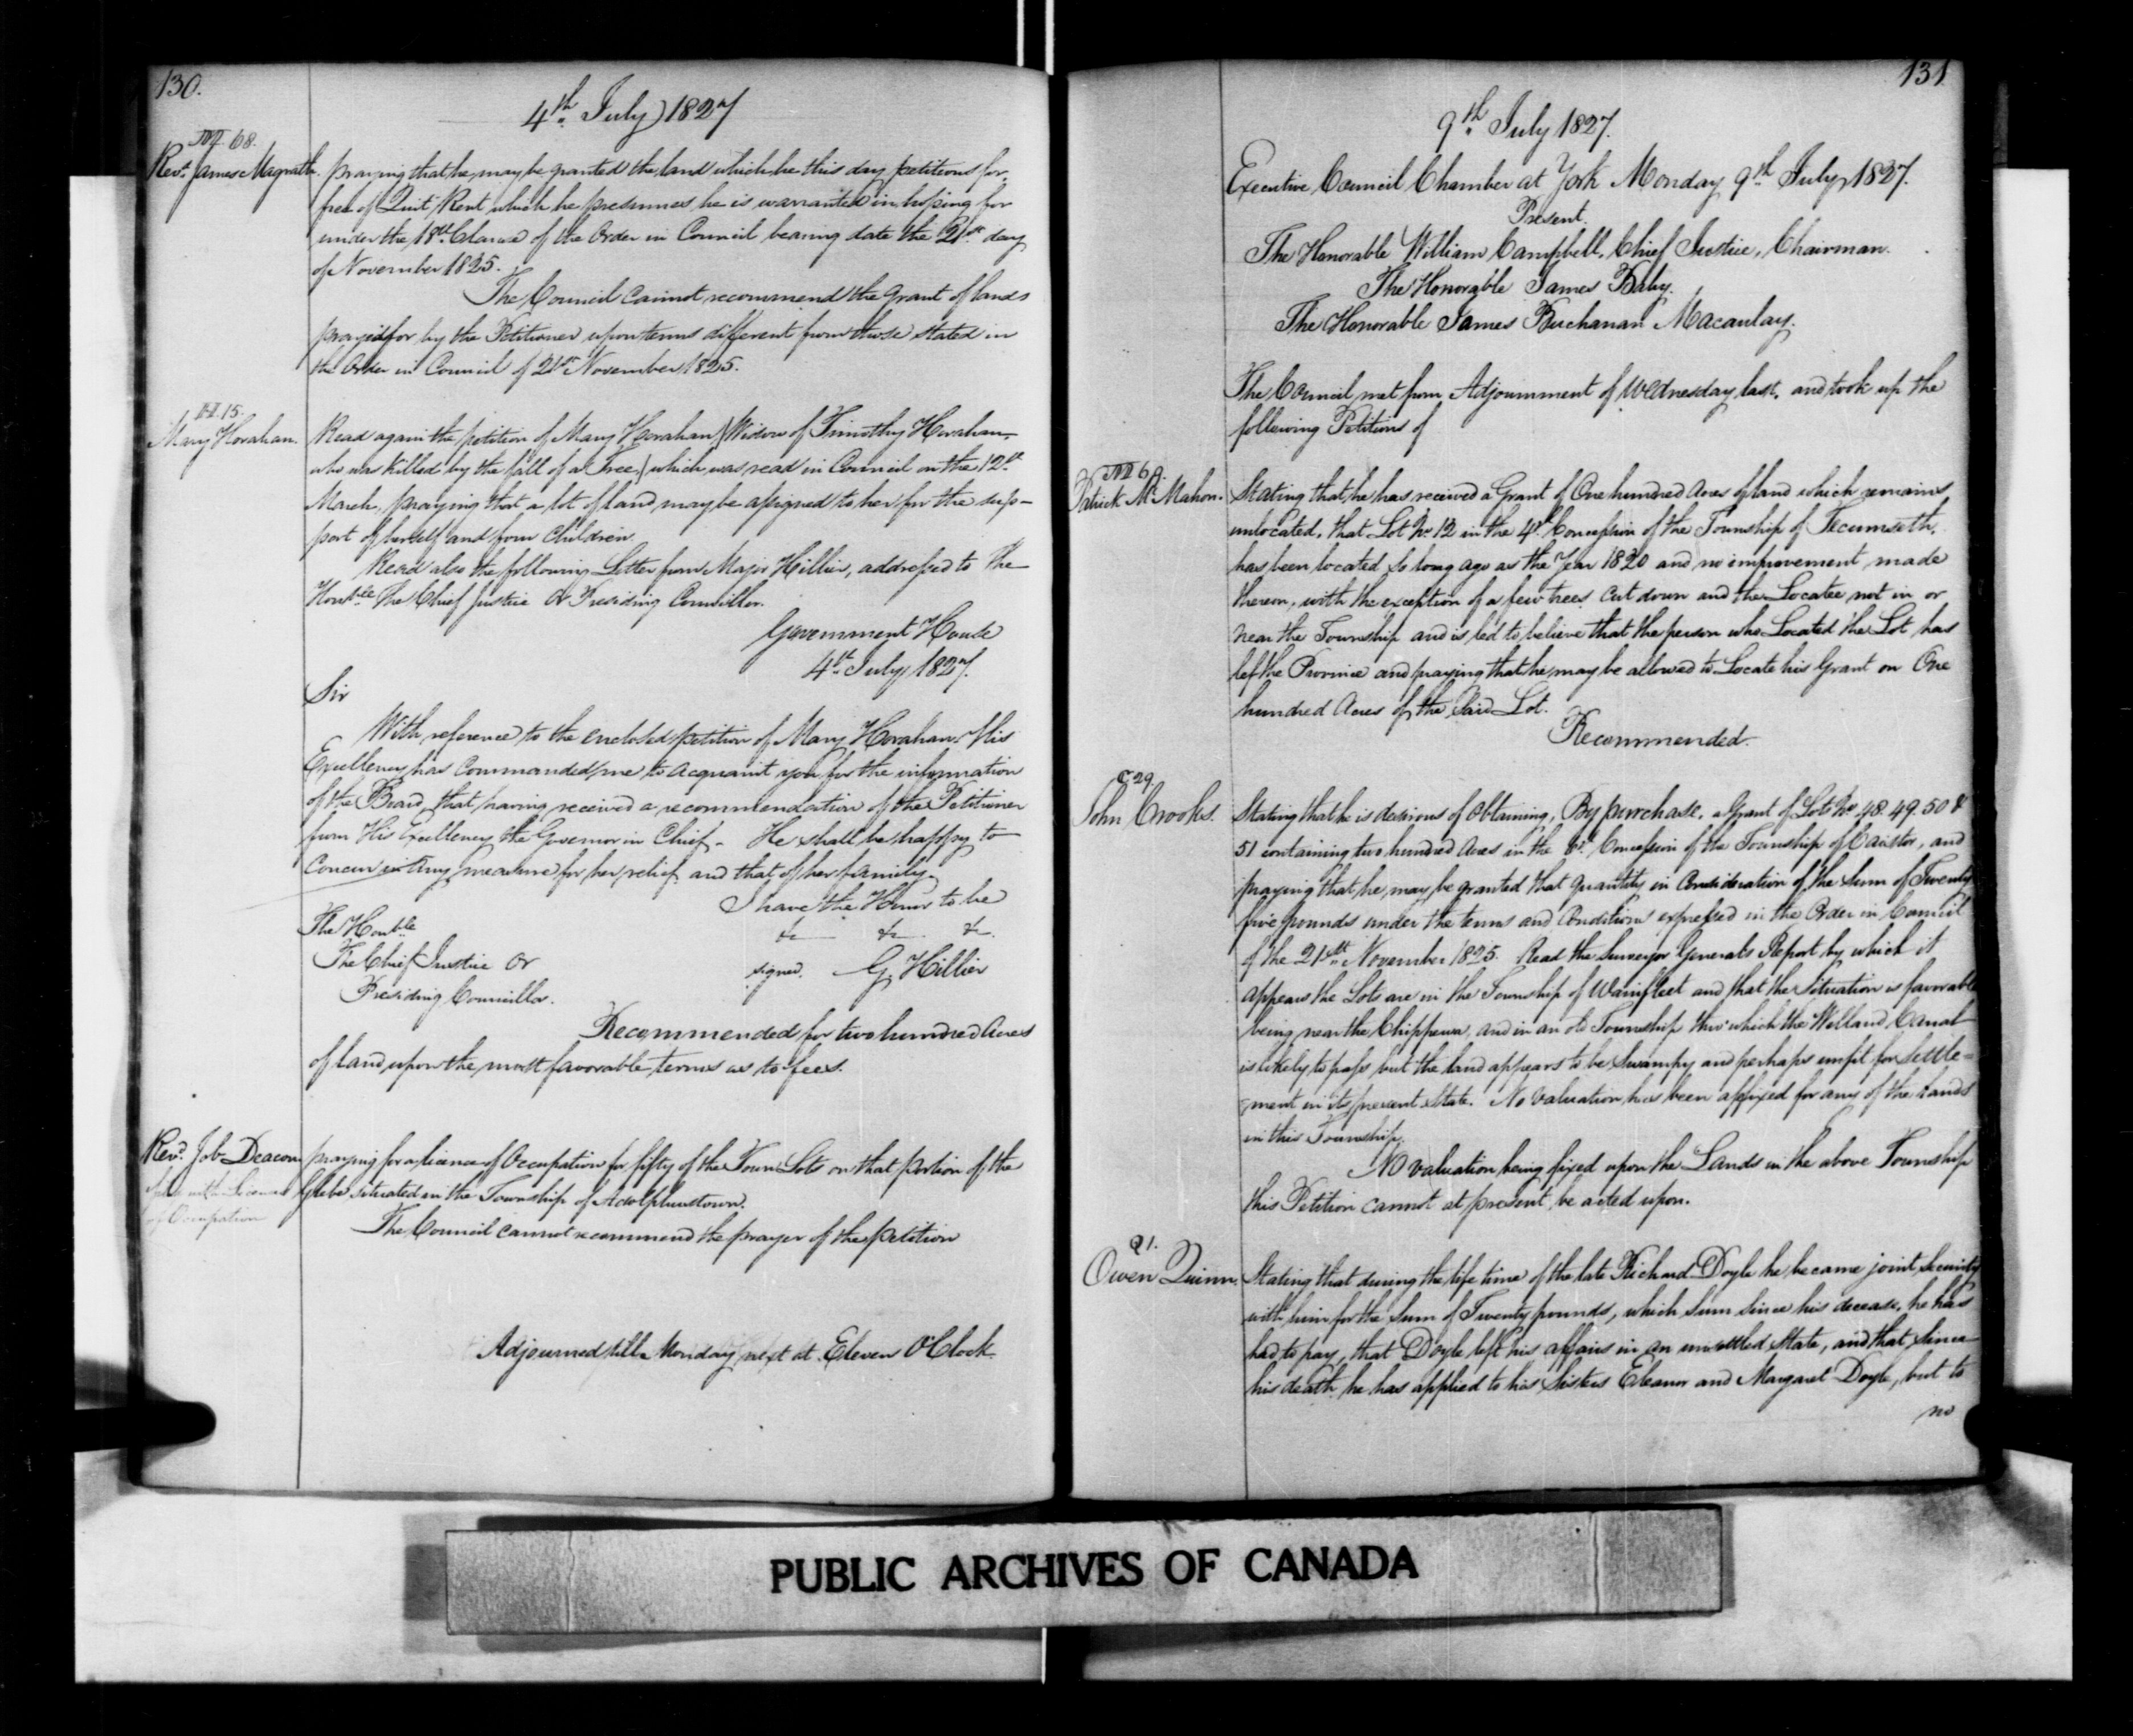 130.
4th July 1827
M 68.
Revd. James Magrath. praying that he may be granted the land which he this day petitions for,
free of Quit Rent which he presumes he is warranted in hoping for
under the 18th Clause of the Order in Council bearing date the 21st day
of November 1825.
The Council cannot recommend the Grant of lands
prayed for by the Petitioner upon terms different from those stated in
the Order in Council of 21st November 1825.
H 15.
Mary Horahan. Read again the petition of Mary Horahan (Widow of Timothy Horahan,
who was killed by the fall of a Tree,) which was read in Council on the 12th
March, praying that a lot of land may be assigned to her for the sup-
port of herself and four Children.
Read also the following Letter from Major Hillier, addressed to The
Honble. The Chief Justice Or Presiding Councillor.
Government House
4th July 1827.
Sir
With reference to the enclosed petition of Mary Horahan. His
Excellency has Commanded me to acquaint you for the information
of the Board, that having received a recommendation of the Petitioner
from His Excellency the Governor in Chief - He shall be happy to
Concur in Any measure for her relief and that of her family.
I have the Honor to be
&c &c &c.
The Honble
The Chief Justice Or
Presiding Councillor.
signed. G. Hillier
Recommended for two hundred Acres
of land upon the most favorable terms as to fees.
Revd. Job Deacon praying for a licence of Occupation for fifty of the Town Lots on that portion of the
Glebe situated in the Township of Adolphustown.
with Licence
of Occupation
The Council cannot recommend the prayer of the petition
Adjourned till Monday next at Eleven O'Clock.
131
9th July 1827.
Executive Council Chamber at York Monday 9th July 1827.
Present.
The Honorable William Campbell, Chief Justice, Chairman.
The Honorable James Baby.
The Honorable James Buchanan Macaulay.
The Council met from Adjournment of Wednesday last, and took up the
following Petitions of
M 69.
Patrick McMahon. Stating that he has received a Grant of One hundred Acres of land which remains
unlocated, that Lot No. 12 in the 4th Concession of the Township of Tecumseth,
has been located so long ago as the Year 1820 and no improvement made
thereon, with the exception of a few trees cut down and the Locatee not in or
near the Township and is led to believe that the person who Located the Lot has
left the Province and praying that he may be allowed to Locate his Grant on One
hundred Acres of the Said Lot.
Recommended.
C 29
John Crooks. Stating that he is desirous of Obtaining, By purchase, a Grant of Lots No. 48. 49. 50 &
51 containing two hundred Acres in the Concession of the Township of Caistor, and
praying that he may be granted that quantity in Consideration of the Sum of Twenty
five pounds under the terms and Conditions expressed in the Order in Council
of the 21st November 1825. Read the Surveyor Generals Report by which it
appears the Lots are in the Township of Wainfleet and that the Situation is favorable
being near the Chippewa, and in an old Township thro' which the Welland Canal
is likely to pass but the land appears to be Swampy and perhaps unfit for Settle-
ment in its present State. No Valuation has been affixed for any of the Lands
in this Township.
No valuation being fixed upon the Lands in the above Township
this Petition cannot at present be acted upon.
Q 1.
Owen Quinn. Stating that during the life time of the late Richard Doyle he became joint Security
with him for the Sum of Twenty pounds, which Sum since his decease, he has
had to pay, that Doyle left his affairs in an unsettled State, and that since
his death he has applied to his Sisters Eleanor and Margaret Doyle, but to
no
PUBLIC ARCHIVES OF CANADA